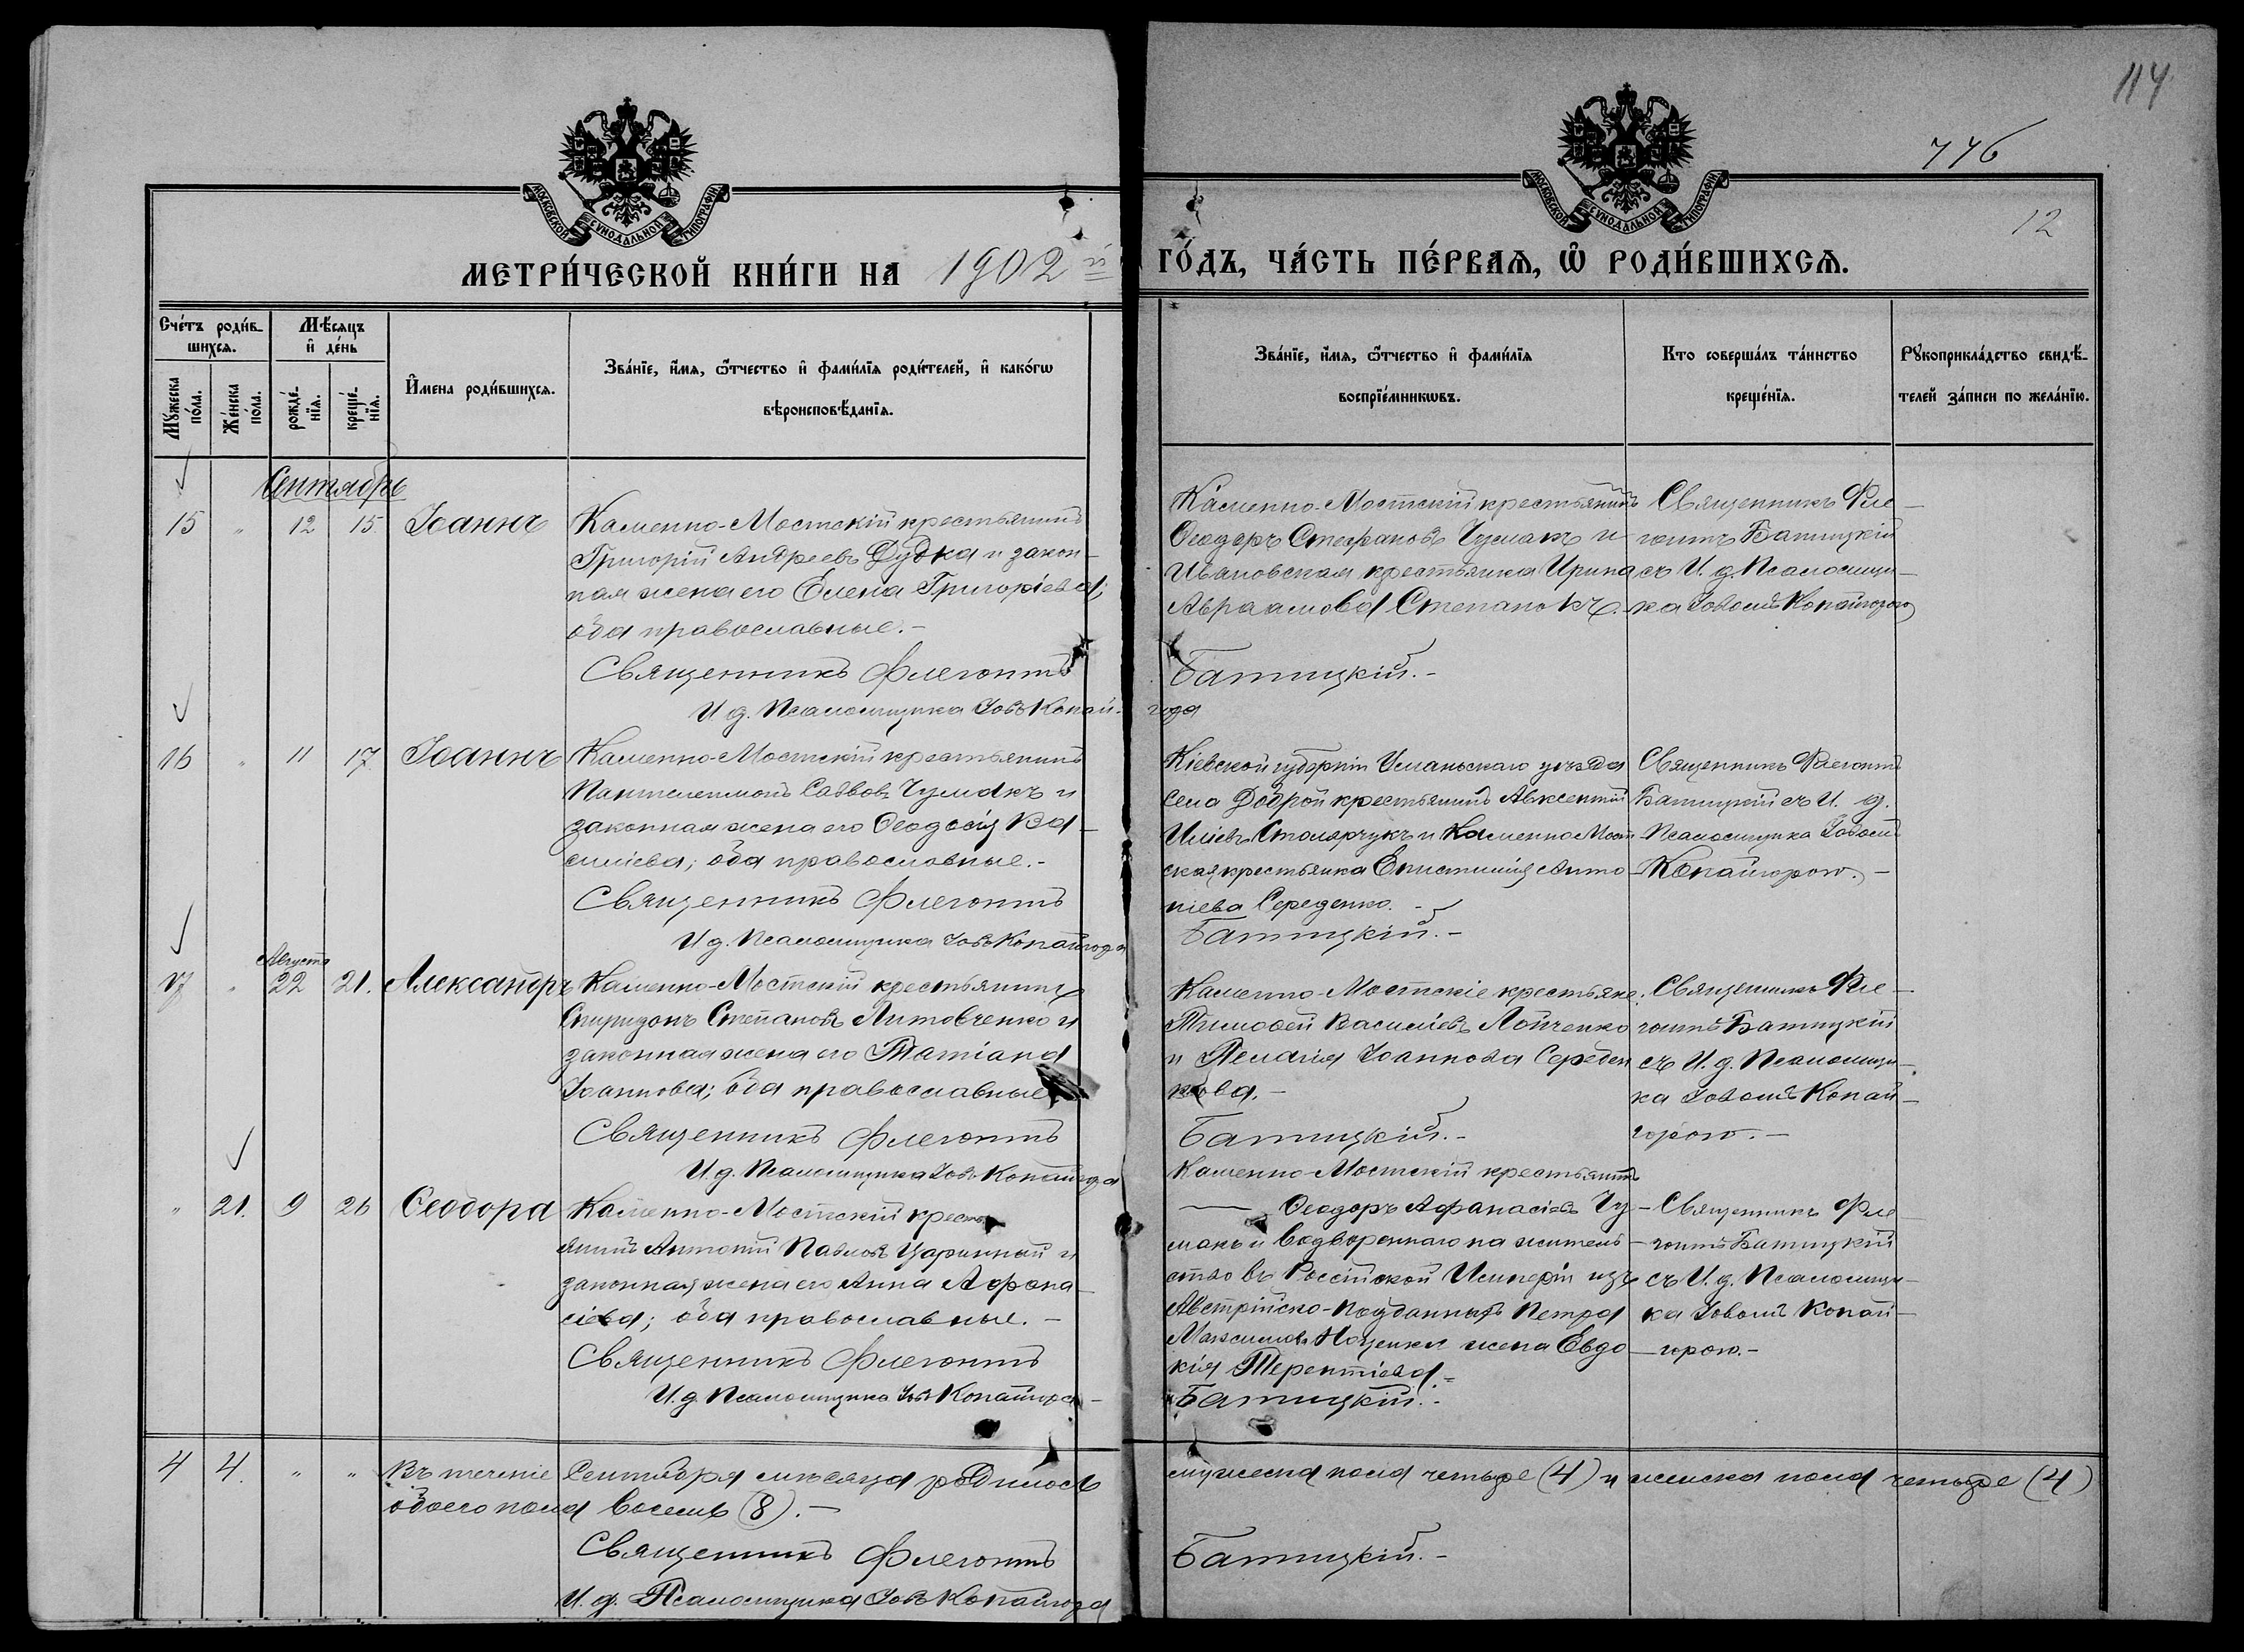 114
776
12
МОСКОВСКОЙ СѴНОДАЛЬНОЙ ТИПОГРАФІИ
МОСКОВСКОЙ СѴНОДАЛЬНОЙ ТИПОГРАФІИ
МЕТРИ́ЧЕСКОЙ КНИ́ГИ НА 1902 й
ГО́ДЪ, ЧА́СТЬ ПЕ́РВАѦ, Ѡ҆ РОДИ́ВШИХСѦ.
Сче́тъ роди́в-
шихсѧ.
Мѣ́сѧцъ
и҆ де́нь
Мꙋ́жеска по́ла.
Же́нска по́ла.
рожде́-
нїѧ.
креще́-
нїѧ.
И҆мена роди́вшихсѧ.
Зва́нїе, и҆́мѧ, ѻ҆́тчество и҆ фами́лїѧ роди́телей, и҆ како́гѡ
вѣроисповѣ́данїѧ.
Зва́нїе, и҆́мѧ, ѻ҆́тчество и҆ фами́лїѧ
воспрїе́мникѡвъ.
Кто соверша́лъ та́инство
креще́нїѧ.
Рꙋкоприкла́дство свидѣ́-
телей за́писи по жела́нїю.
Сентябрь
15 " 12 15 Іоаннъ
Каменно-Мостскій крестьянинъ
Григорій Андреевъ Дудка и закон-
ная жена его Елена Григоріева;
оба православные.-
Священникъ Флегонтъ
И д. Псаломщика Іовъ Копай-
Каменно-Мостскій крестьянинъ
Ѳеодоръ Стефановъ Чумакъ и
Ивановская крестьянка Ирина
Авраамова Степанокъ.
Батицкій.-
года
Священникъ Фле-
гонтъ Батицкій
съ И. д. Псаломщи-
ка Іовомъ Копайгородо
16 " 11 17 Іоаннъ
Каменно-Мостскій крестьянинъ
Пантелеимонъ Саввовъ Чумакъ и
законная жена его Ѳеодосія Ва-
силіева; оба православные.-
Священникъ Флегонтъ
И д. Псаломщика Іовъ Копайгода
Кіевской губерніи Уманьскаго уѣзда
села Доброй крестьянинъ Авксентій
Иліевъ Столярчукъ и Каменно Мост-
ская крестьянка Епистимія Анто-
ніева Середенко.-
Батицкій.-
Священникъ Флегонтъ
Батицкій съ И. д.
Псаломщика Іовомъ
Копайгорою.-
Августа
17 " 22 21. Александръ
Каменно-Мостскій крестьянинъ
Спиридонъ Степановъ Литовченко и
законная жена его Татіана
Іоаннова; оба православные
Священникъ Флегонтъ
И. д. Псаломщика Іовъ Копайгода
Каменно-Мостскіе крестьяне:
Тимоѳей Василіевъ Лойченко
и Пелагія Іоаннова Середен
кова.-
Батицкій.-
Священникъ Фле-
гонтъ Батицкій
съ И. д. Псаломщи-
ка Іовомъ Копай-
горою.-
" 21. 9 26 Ѳеодора
Каменно-Мостскій кресть
янинъ Антоній Павловъ Царинный и
законная жена его Анна Афана-
сіева; оба православные.-
Священникъ Флегонтъ
И. д. Псаломщика Іовъ Копайгора-
Каменно-Мостскій крестьянинъ
Ѳеодоръ Афанасіевъ Чу-
макъ и водвореннаго на житель-
ство въ Россійской Имперіи изъ
Австрійско-подданныхъ Петра
Максимова Наценка жена Евдо-
кія Терентіева.-
Батицкій.-
Священникъ Фле
гонтъ Батицкій
съ И. д. Псаломщи-
ка Іовомъ Копай-
горою.-
4 4. " " Въ теченіе Сентября мѣсяца родилось мужеска пола четыре (4) и женска пола четыре (4)
обоего пола восемь (8).-
Священникъ Флегонтъ Батицкій.-
И. д. Псаломщика Іовъ Копайгода